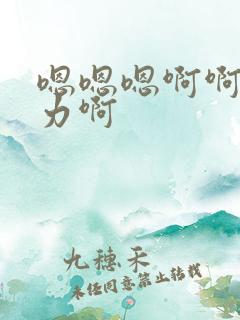 嗯嗯嗯啊啊
力啊
九穗禾
未经同意禁止转载